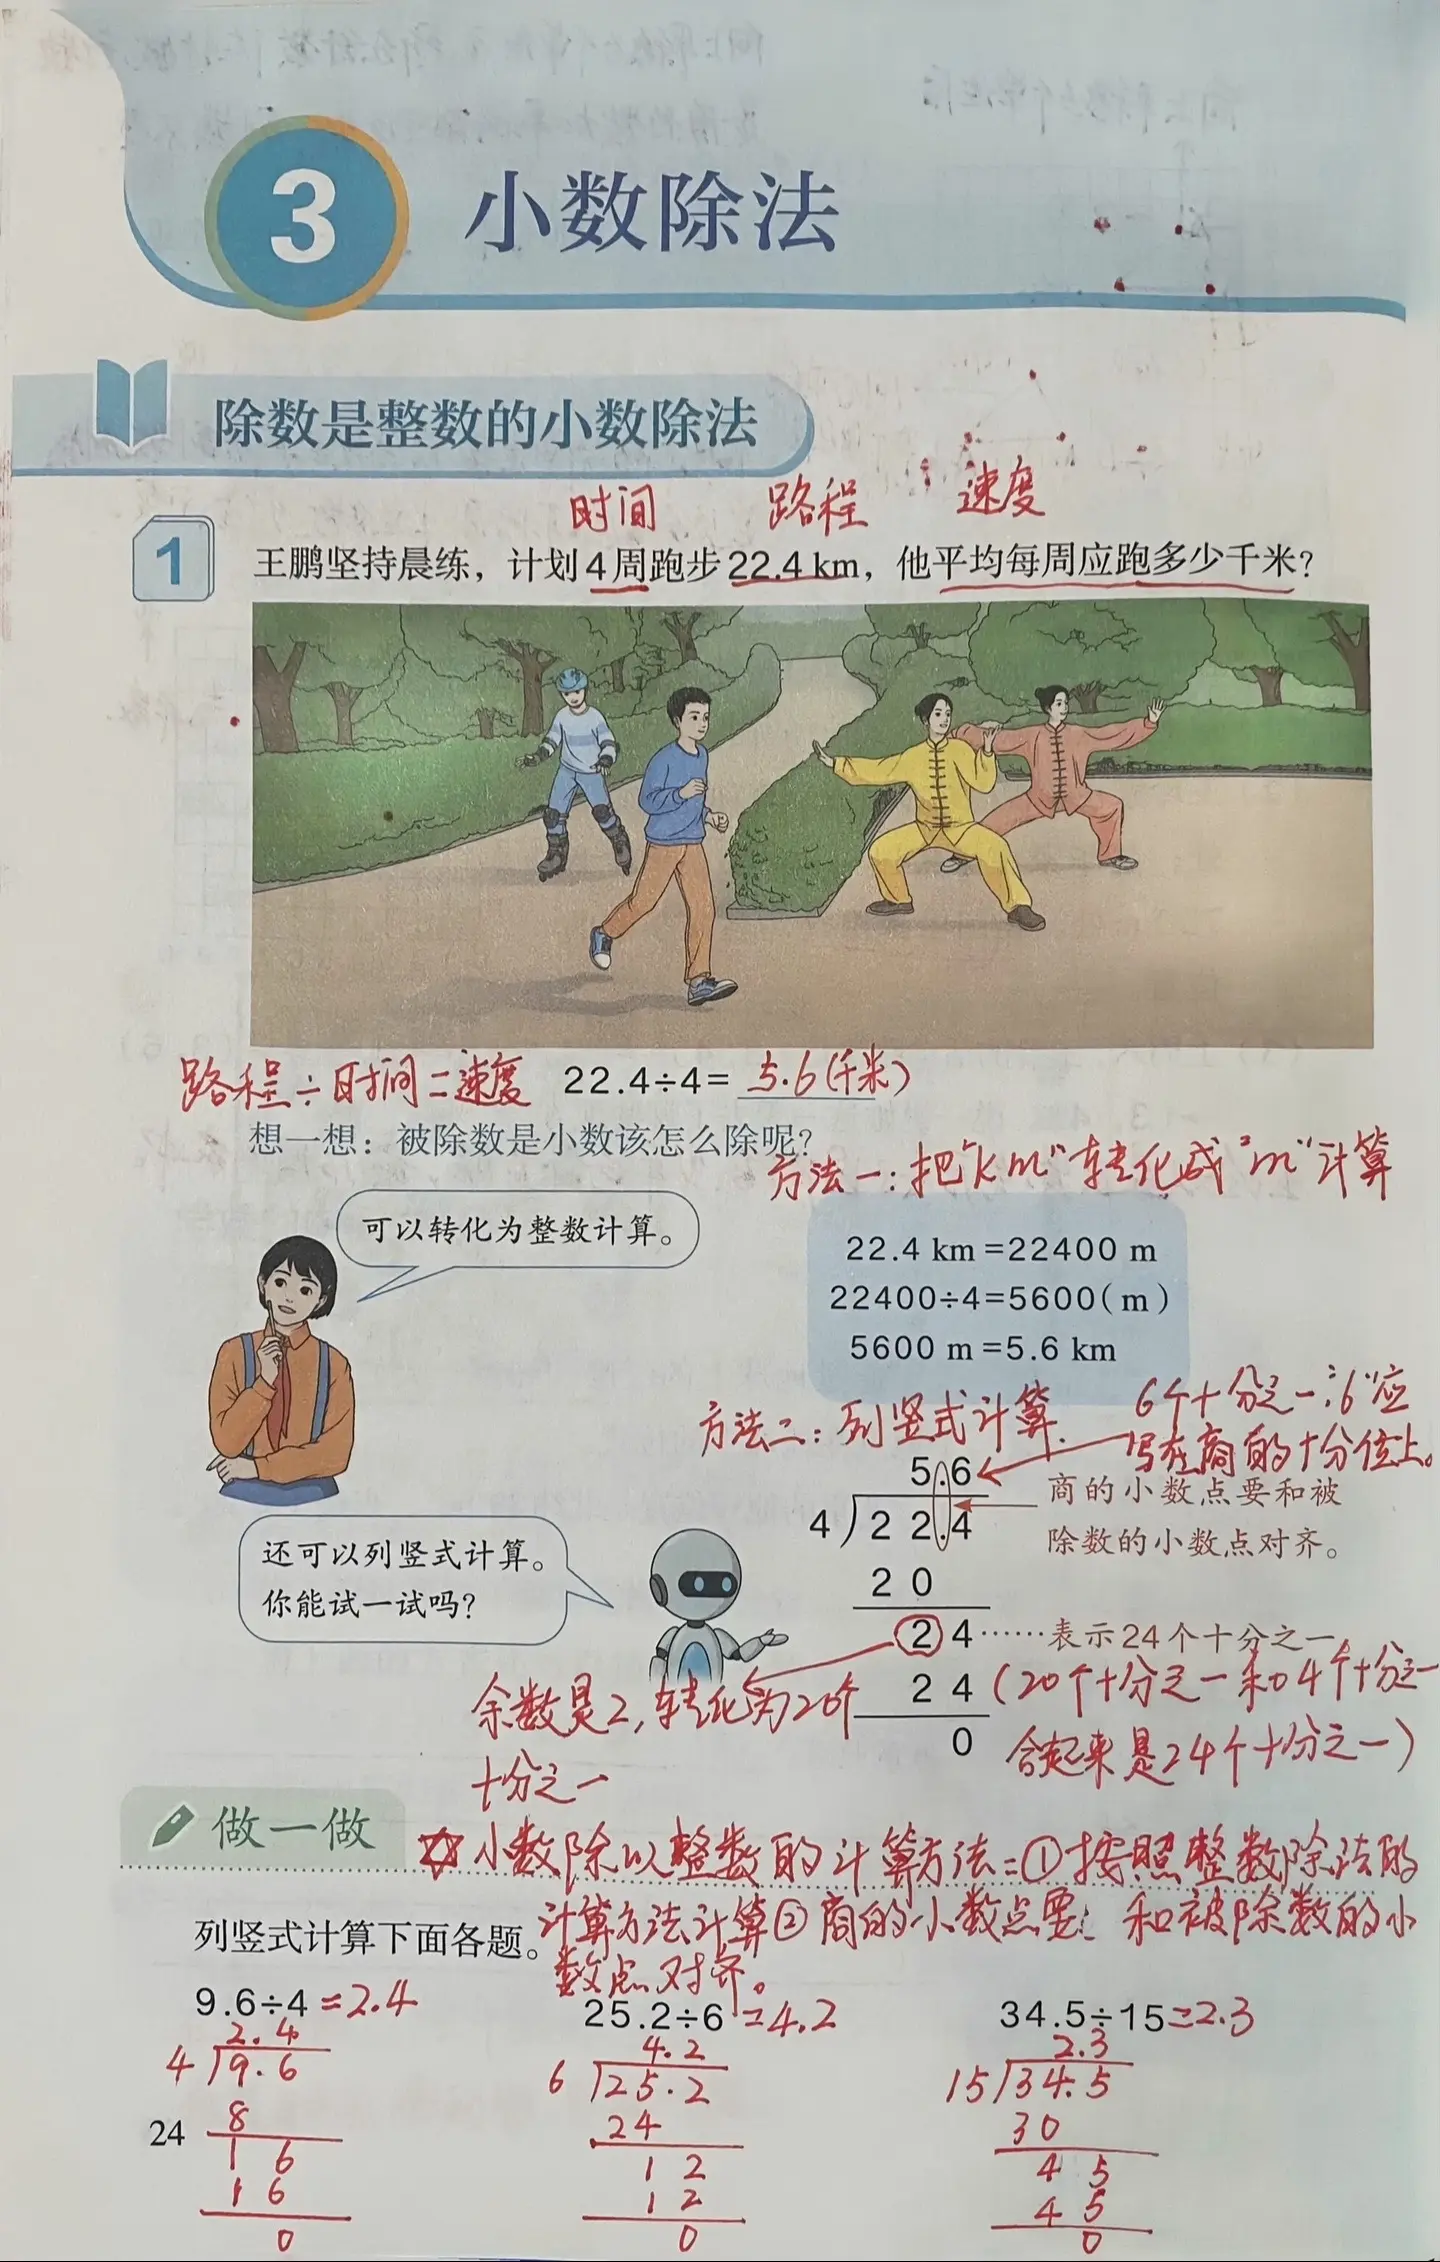 3 小数除法
除数是整数的小数除法
时间 路程 速度
1 王鹏坚持晨练，计划4周跑步22.4 km，他平均每周应跑多少千米？
路程÷时间=速度 22.4÷4= 5.6(千米)
想一想：被除数是小数该怎么除呢？
方法一：把"km"转化成"m"计算
可以转化为整数计算。
22.4 km =22400 m
22400÷4=5600( m )
5600 m =5.6 km
方法二：列竖式计算.
6个十分之一，"6"应
写在商的十分位上。
5.6
商的小数点要和被
除数的小数点对齐。
4 22.4
20
24……表示24个十分之一
还可以列竖式计算。
你能试一试吗？
余数是2，转化为20个
十分之一
24 (20个十分之一和4个十分之一
0 合起来是24个十分之一)
做一做
☆小数除以整数的计算方法：①按照整数除法的
计算方法计算②商的小数点要 和被除数的小
数点对齐。
列竖式计算下面各题。
9.6÷4=2.4 25.2÷6=4.2 34.5÷15=2.3
2.4 4.2 2.3
4 9.6 6 25.2 15 34.5
8 24 30
1 6 1 2 4 5
1 6 1 2 4 5
0 0 0
24